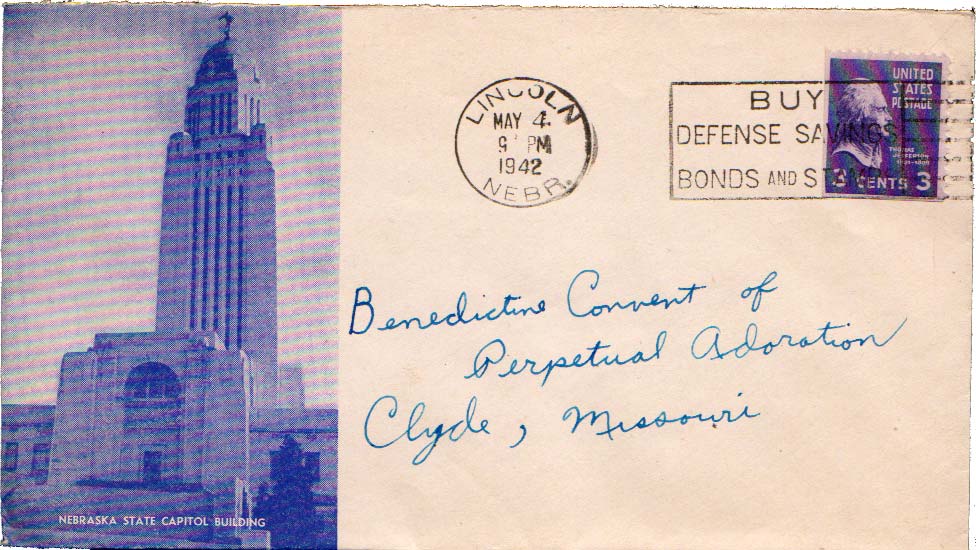 LINCOLN
MAY 4
9 PM
1942
NEBR.
BUY
DEFENSE SAVINGS
BONDS AND STAMPS
UNITED
STATES
POSTAGE
THOMAS
JEFFERSON
3 CENTS 3
Benedictine Convent of
Perpetual Adoration
Clyde, Missouri
NEBRASKA STATE CAPITOL BUILDING